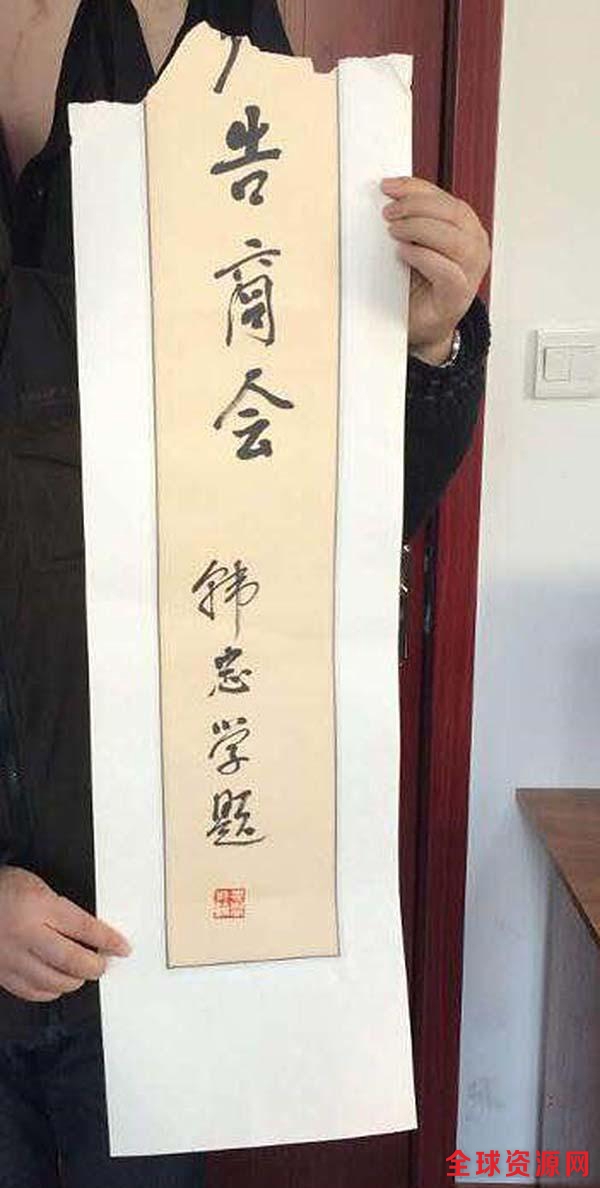 告商会
韩忠学题
全球资源网